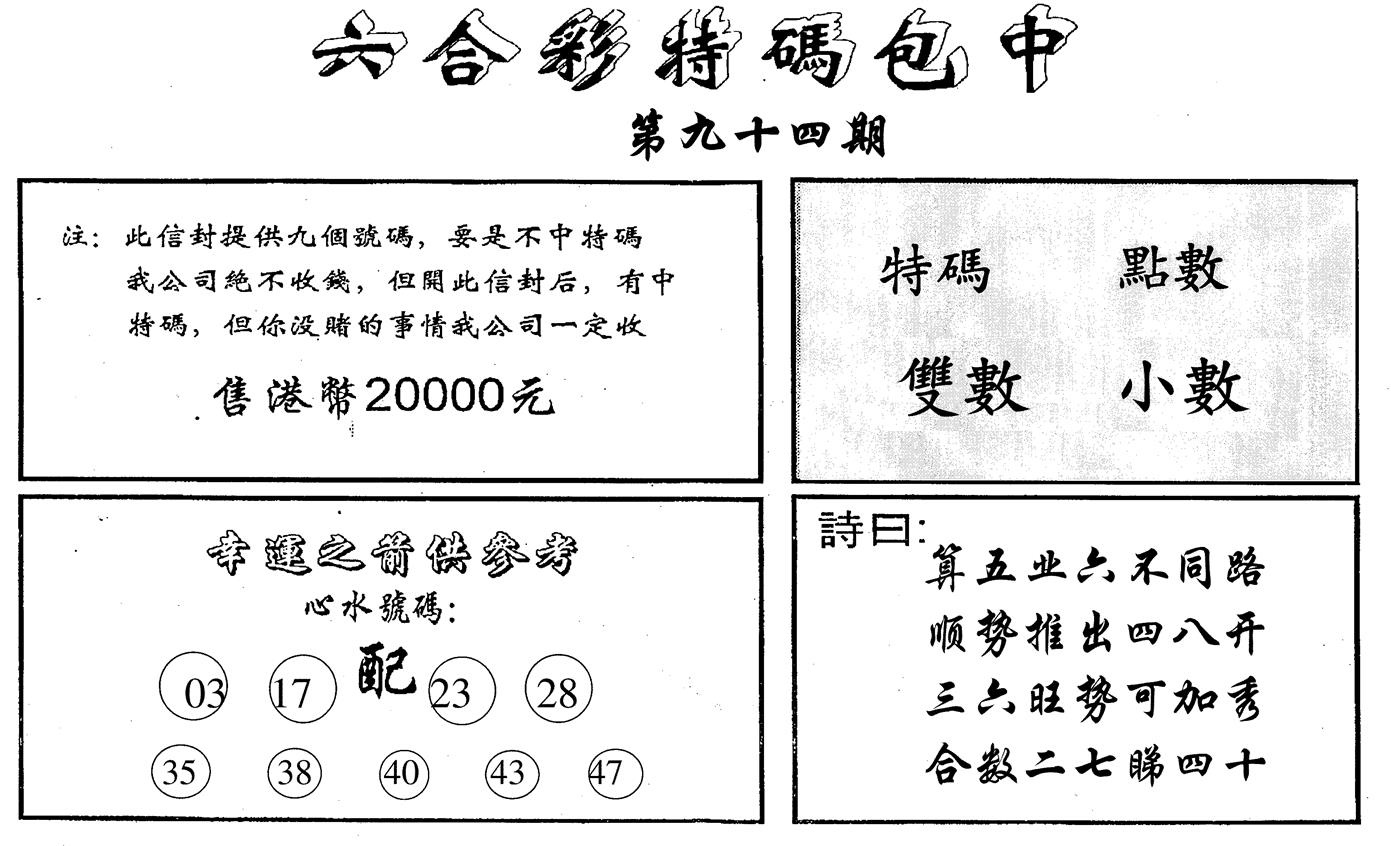 六合彩特碼包中
第九十四期
注：此信封提供九個號碼，要是不中特碼
我公司絕不收錢，但開此信封后，有中
特碼，但你没賭的事情我公司一定收
售港幣20000元
特碼 點數
雙數 小數
幸運之箭供參考
心水號碼：
03 17 配 23 28
35 38 40 43 47
詩曰：
算五业六不同路
顺势推出四八开
三六旺势可加秀
合数二七睇四十